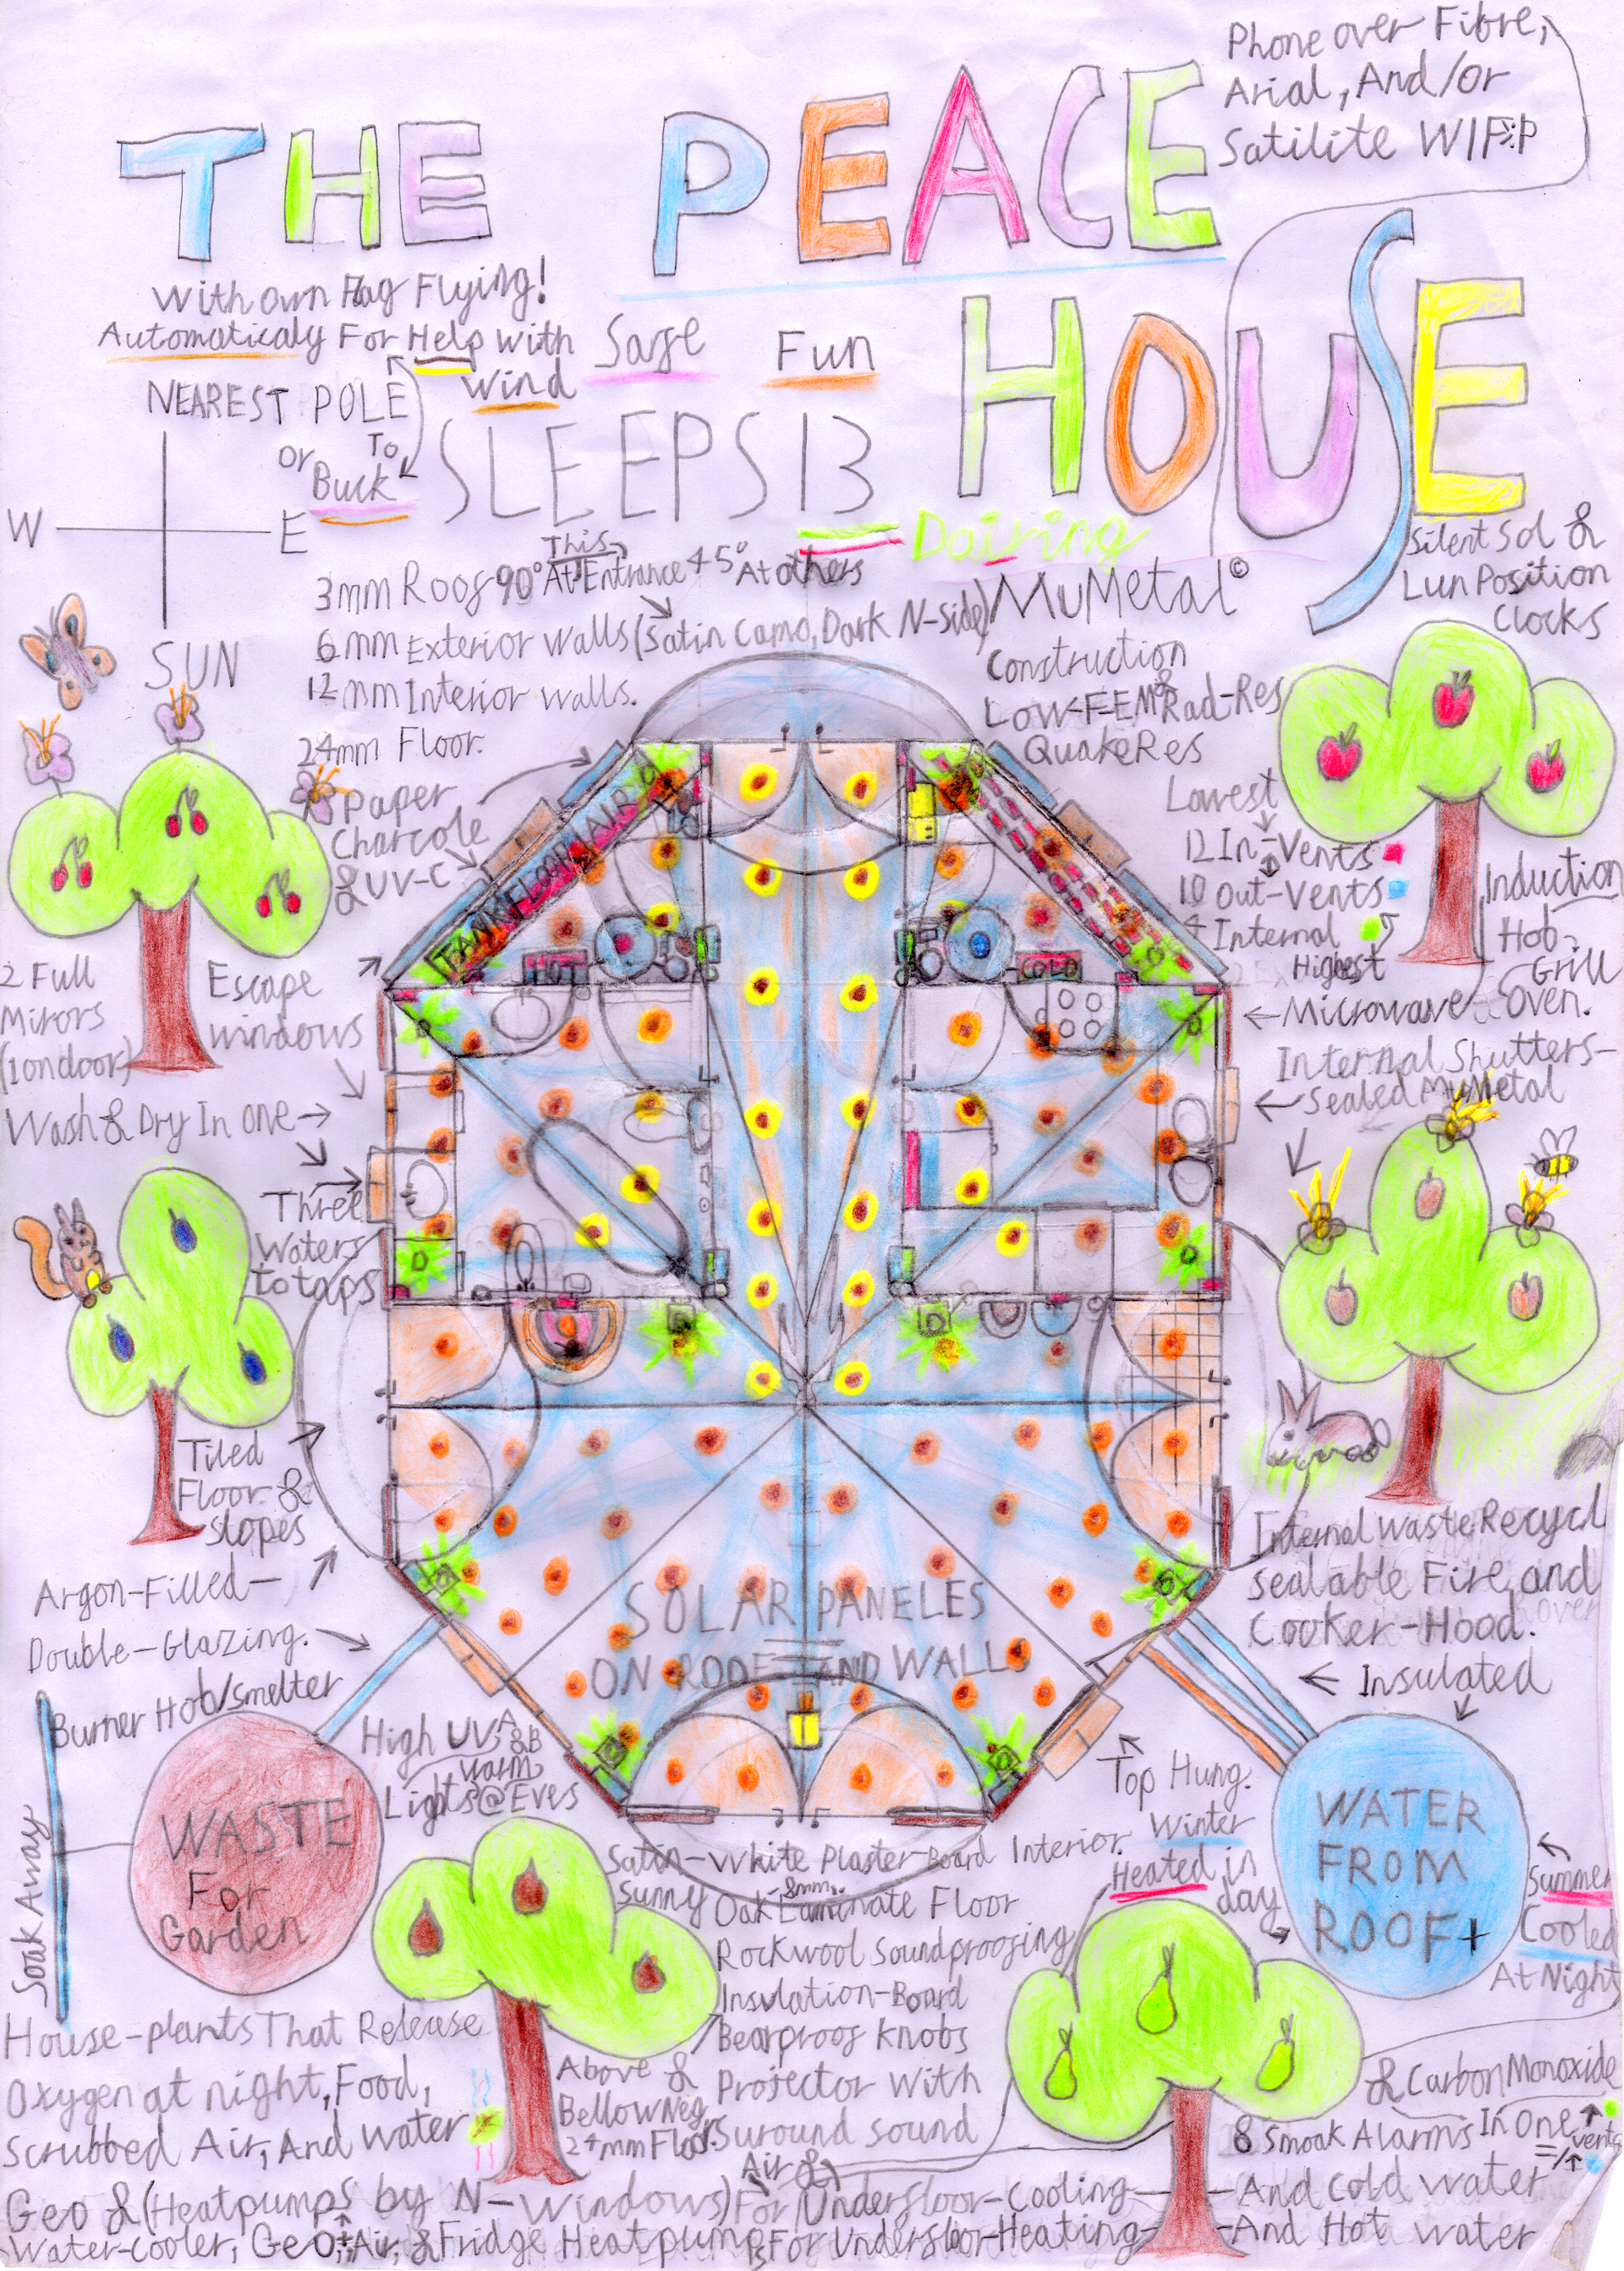 Phone over Fibre,
Arial, And/or
Satilite WIFIP
THE PEACE
HOUSE
With own Flag Flying!
Automaticaly For Help with
Wind
Safe
Fun
NEAREST POLE
or
To
Buck
SLEEPS 13
Dairing
W
E
SUN
Silent Sol &
Lun Position
Clocks
This
3mm Roof 90° At Entrance 45° At others
MuMetal©
6mm Exterior Walls (Satin Camo, Dark N-side)
12mm Interior Walls.
24mm Floor.
Construction
Low-F-EMF & Rad-Res
QuakeRes
Paper
Charcole
& UV-C
Lowest
12 In-Vents
10 Out-Vents
4 Internal
Highest
Induction
Hob-
Grill
Microwave-Oven.
TANN FLOOR AIR
HOT
COLD
2 Full
Mirors
(1 on door)
Escape
windows
Wash & Dry In One
Internal Shutters-
Sealed MuMetal
Three
Waters
to taps
Tiled
Floor &
slopes
Argon-Filled-
Double-Glazing.
SOLAR PANELES
ON ROOF AND WALLS
Internal Waste Recycl
Sealable Fire, and
Cooker-Hood.
Insulated
Burner Hob/smelter
High UV A &B
warm
Lights @ Eves
WASTE
For
Garden
Soak Away
Top Hung.
Winter
Heated in
day
WATER
FROM
ROOF+
Summer
Cooled
At Night
Satin-White Plaster-Board Interior.
Sunny Oak Laminate Floor
8mm.
Rockwool Soundproofing
Insulation-Board
Bearproof Knobs
Projector With
Suround Sound
House-plants That Release
Oxygen at night, Food,
Scrubbed Air, And Water
Above &
Bellow Neg
24mm Floor.
& Carbon Monoxide
8 Smoak Alarms In One
vents
Air &
Geo & (Heatpumps by N-Windows) For Underfloor-Cooling-And Cold Water
Water-cooler, Geo, Air, & Fridge Heatpumps For Underfloor-Heating-And Hot Water